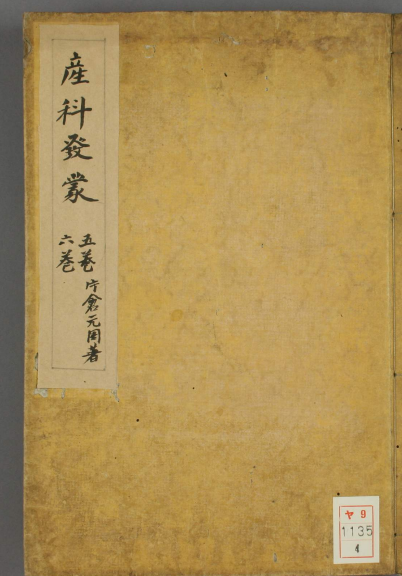 産科發蒙
五巻
六巻
片倉元周著
ヤ9
1135
4